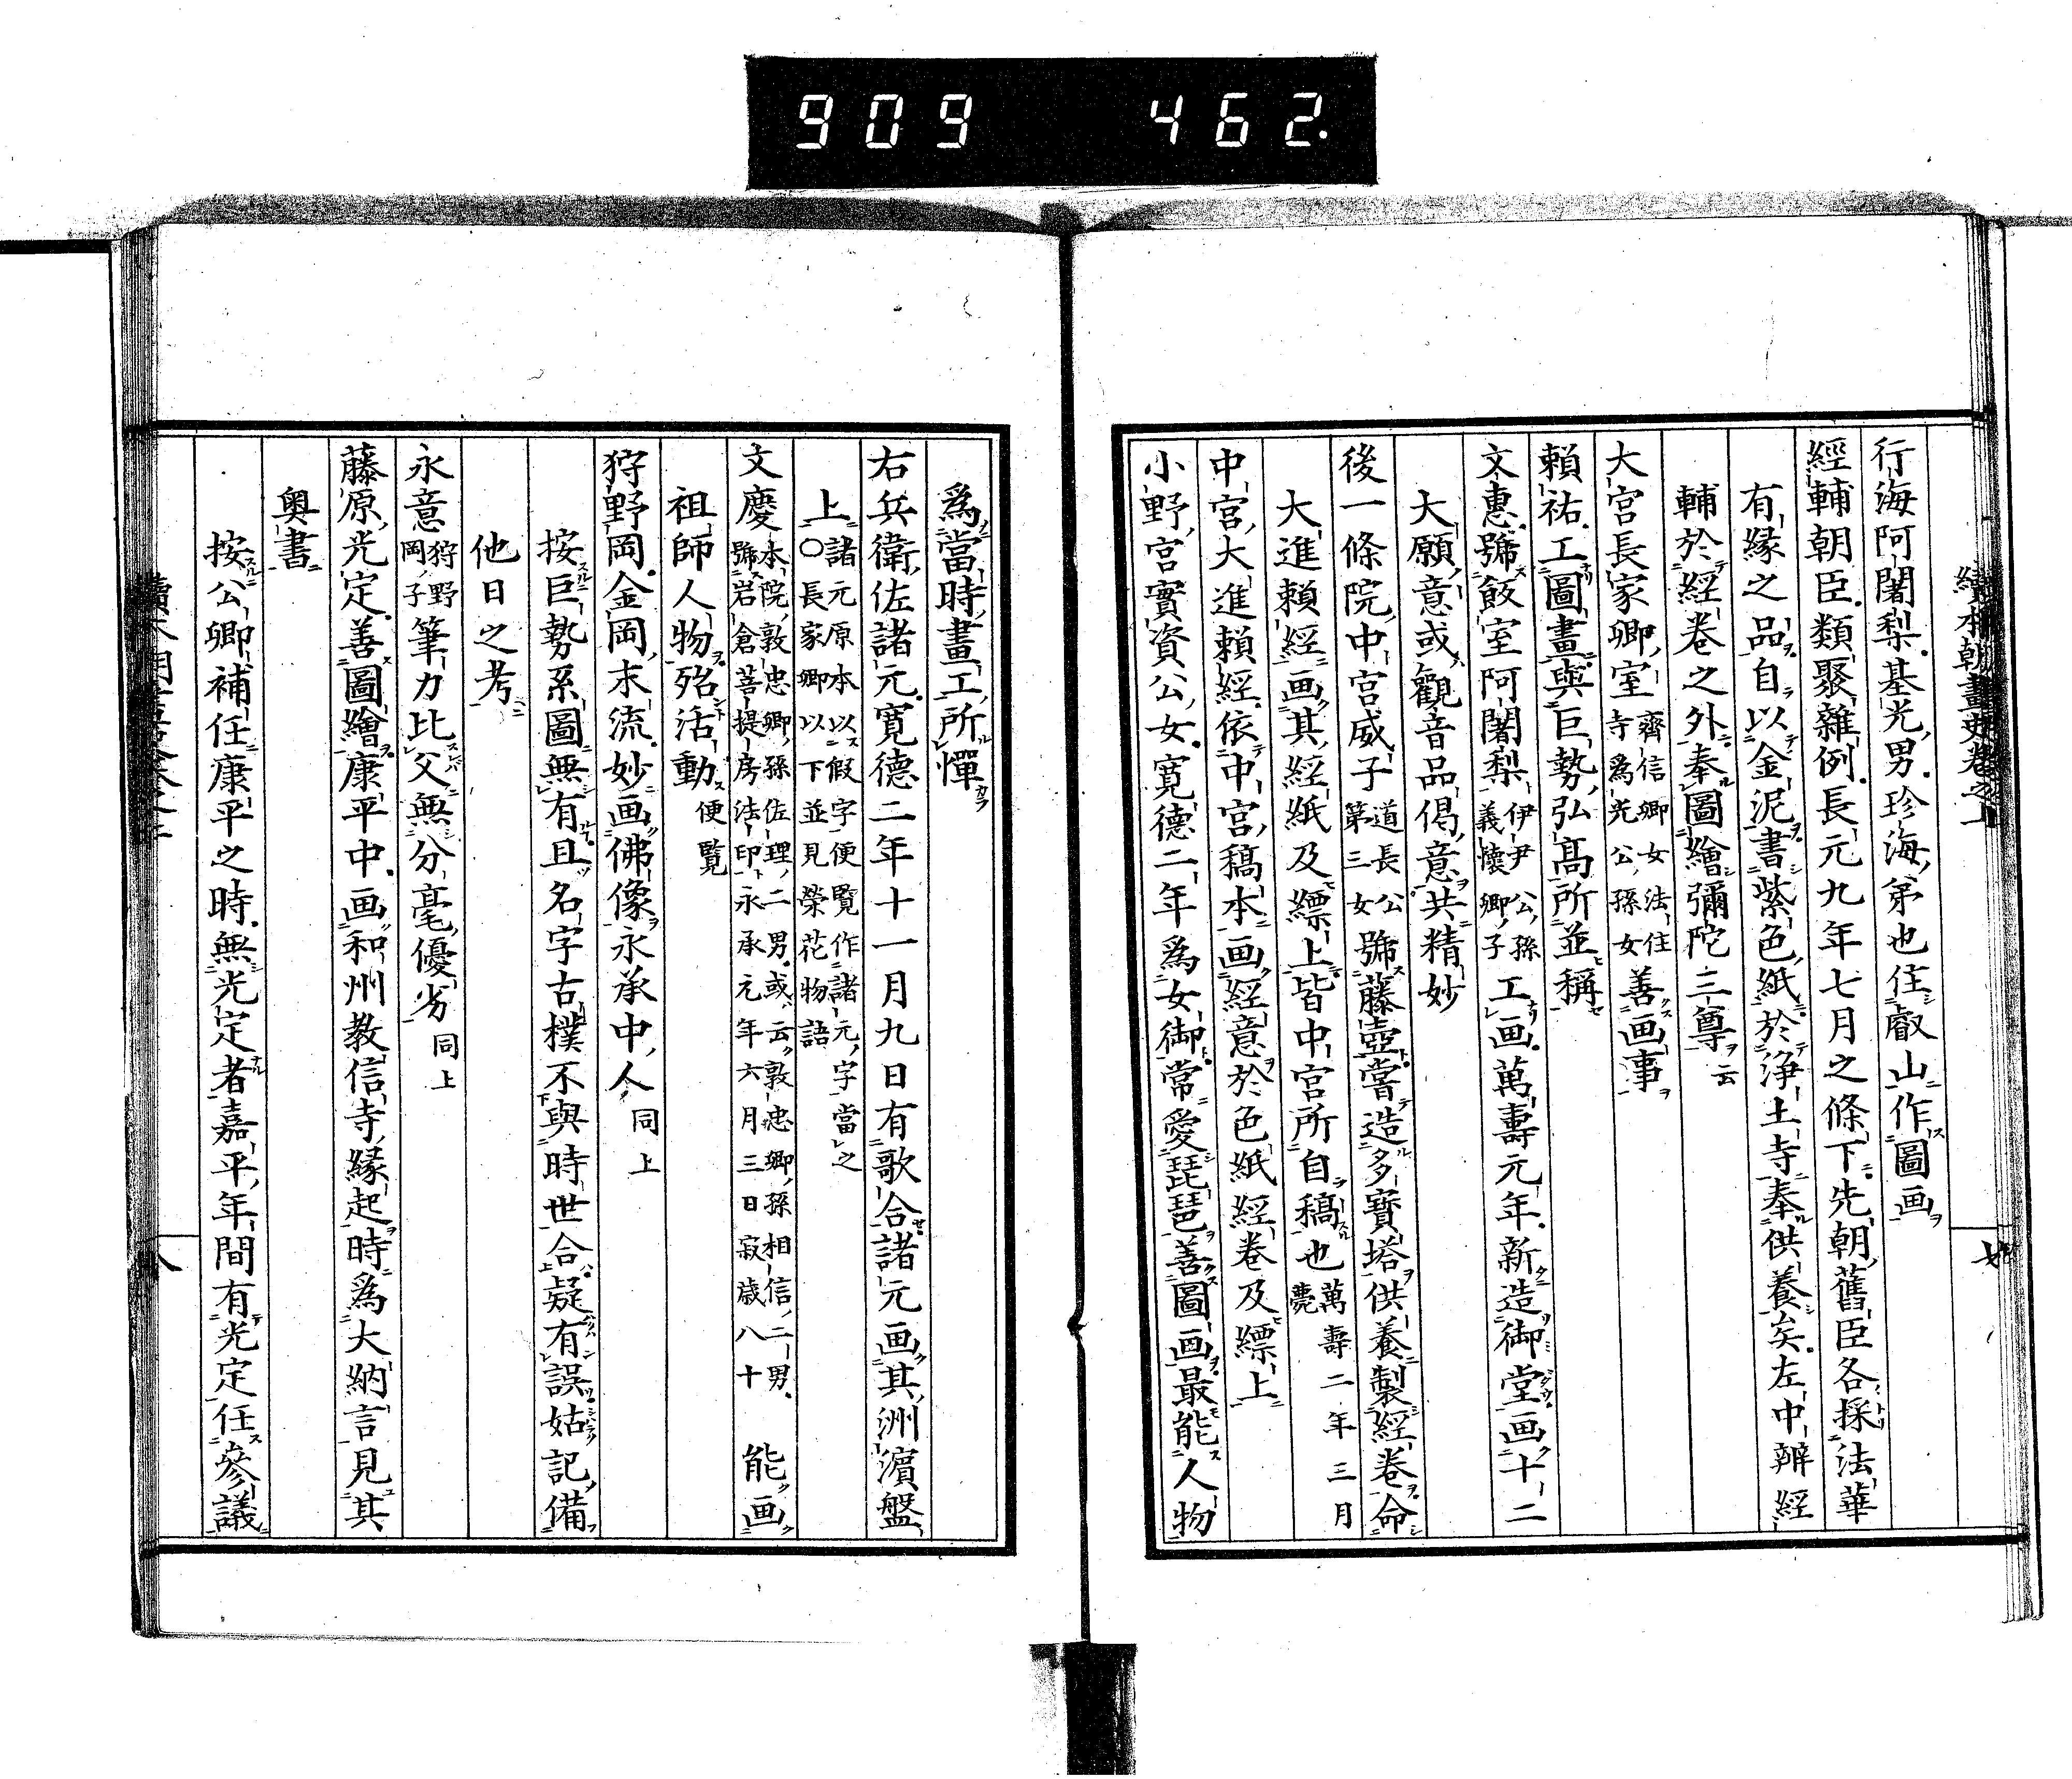 909 462.
續本朝畫史卷之上
行海阿闍梨基光男珍海弟也住叡山作圖画
經輔朝臣類聚雜例長元九年七月之條下先朝舊臣各採法華
有緣之品自以金泥書紫色紙於浄土寺奉供養矣左中辨經
輔於經卷之外奉圖繪彌陀三尊云
大宮長家卿室齊信卿女法住寺為光公孫女善画事
賴祐工圖畫與巨勢弘高所並稱
文惠號飯室阿闍梨伊尹公孫義懷卿子工画萬壽元年新造御堂画十二
大願意或觀音品偈意共精妙
後一條院中宮威子道長公第三女號藤壺嘗造多寶塔供養製經卷命
大進賴經画其經紙及縹上皆中宮所自稿也萬壽二年三月薨
中宮大進賴經依中宮稿本画經意於色紙經卷及縹上
小野宮實資公女寬德二年為女御常愛琵琶善圖画最能人物
為當時畫工所憚
右兵衛佐諸元寬德二年十一月九日有歌合諸元画其洲濵盤
上諸元原本以假字便覽作諸元字當之〇長家卿以下並見榮花物語
文慶本院敦忠卿孫佐理二男或云敦忠卿孫相信二男號岩倉菩提房法印永承元年六月三日寂歳八十能画
祖師人物殆活動便覽
狩野岡金岡末流妙画佛像永承中人同上
按巨勢系圖無有且名字古樸不與時世合疑有誤姑記備
他日之考
永意狩野岡子筆力比父無分毫優劣同上
藤原光定善圖繪康平中画和州教信寺緣起時為大納言見其
奥書
按公卿補任康平之時無光定者嘉平年間有光定任參議
八